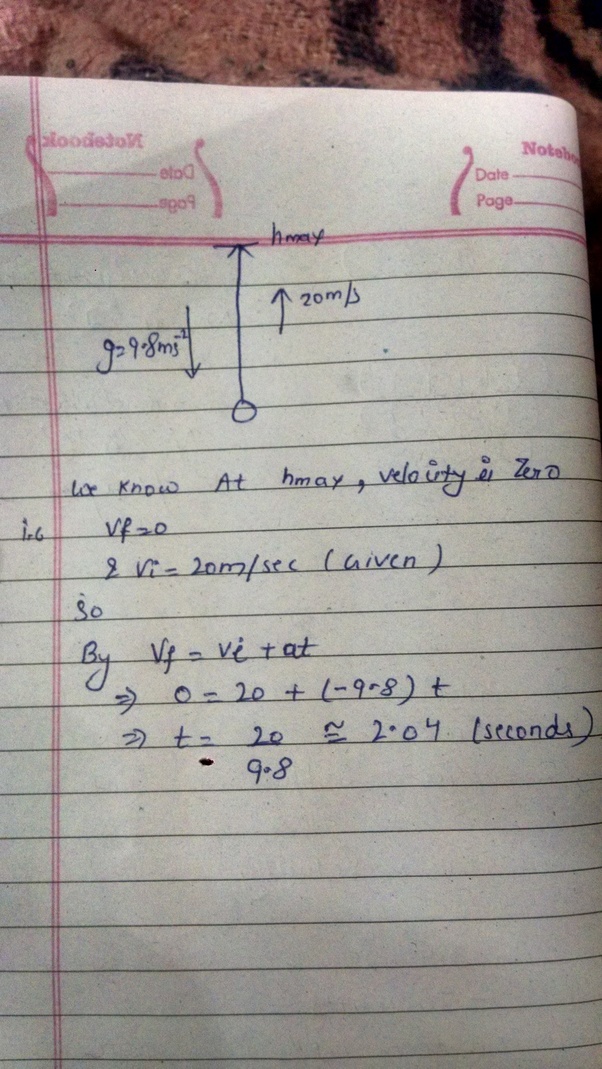 Notebook
Date
Page
Notebo
Date
Page
hmax
20m/s
g=9.8ms⁻²
We know At hmax, velocity is Zero
i.e Vf=0
& Vi = 20m/sec (Given)
So
By Vf = Vi + at
⇒ 0 = 20 + (-9.8) t
⇒ t = 20/9.8 ≅ 2.04 (seconds)